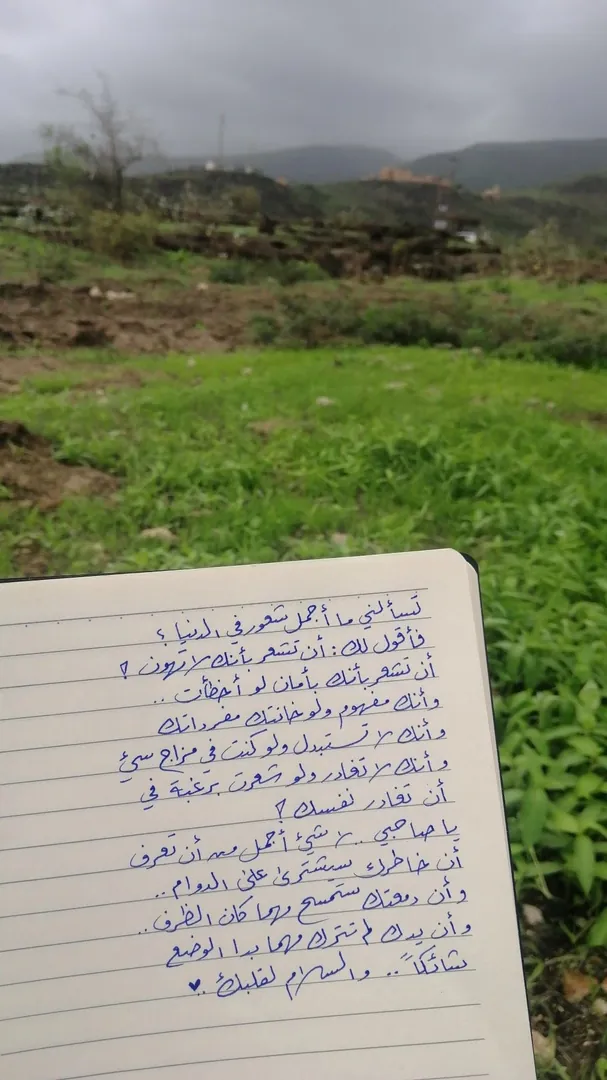 تسألني ما أجمل شعور في الدنيا ؟
فأقول لك : أن تشعر بأنك لا تهون ؟
أن تشعر بأنك بأمان لو أخطأت ..
وأنك مفهوم ولو خانتك مفرداتك
وأنك لا تستبدل ولو كنت في مزاج سيئ
وأنك لا تغادر ولو شعرت برغبة في
أن تغادر نفسك ؟
يا صاحبي .. لا شيئ أجمل من أن تعرف
أن خاطرك سيشترى على الدوام ..
وأن دمعتك ستمسح مهما كان الظرف ..
وأن يدك لم تترك مهما بدا الوضع
شائكاً .. والسلام لقلبك .. ♥